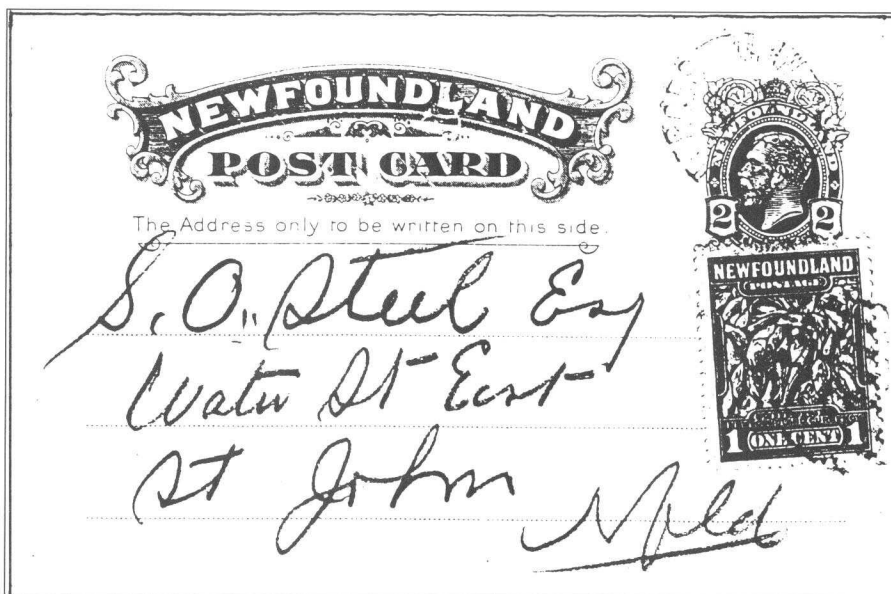 NEWFOUNDLAND
POST CARD
The Address only to be written on this side.
NEWFOUNDLAND
2 2
NEWFOUNDLAND
POSTAGE
1 ONE CENT 1
S. O. Steel Esq
Water St East
St John
Nfld